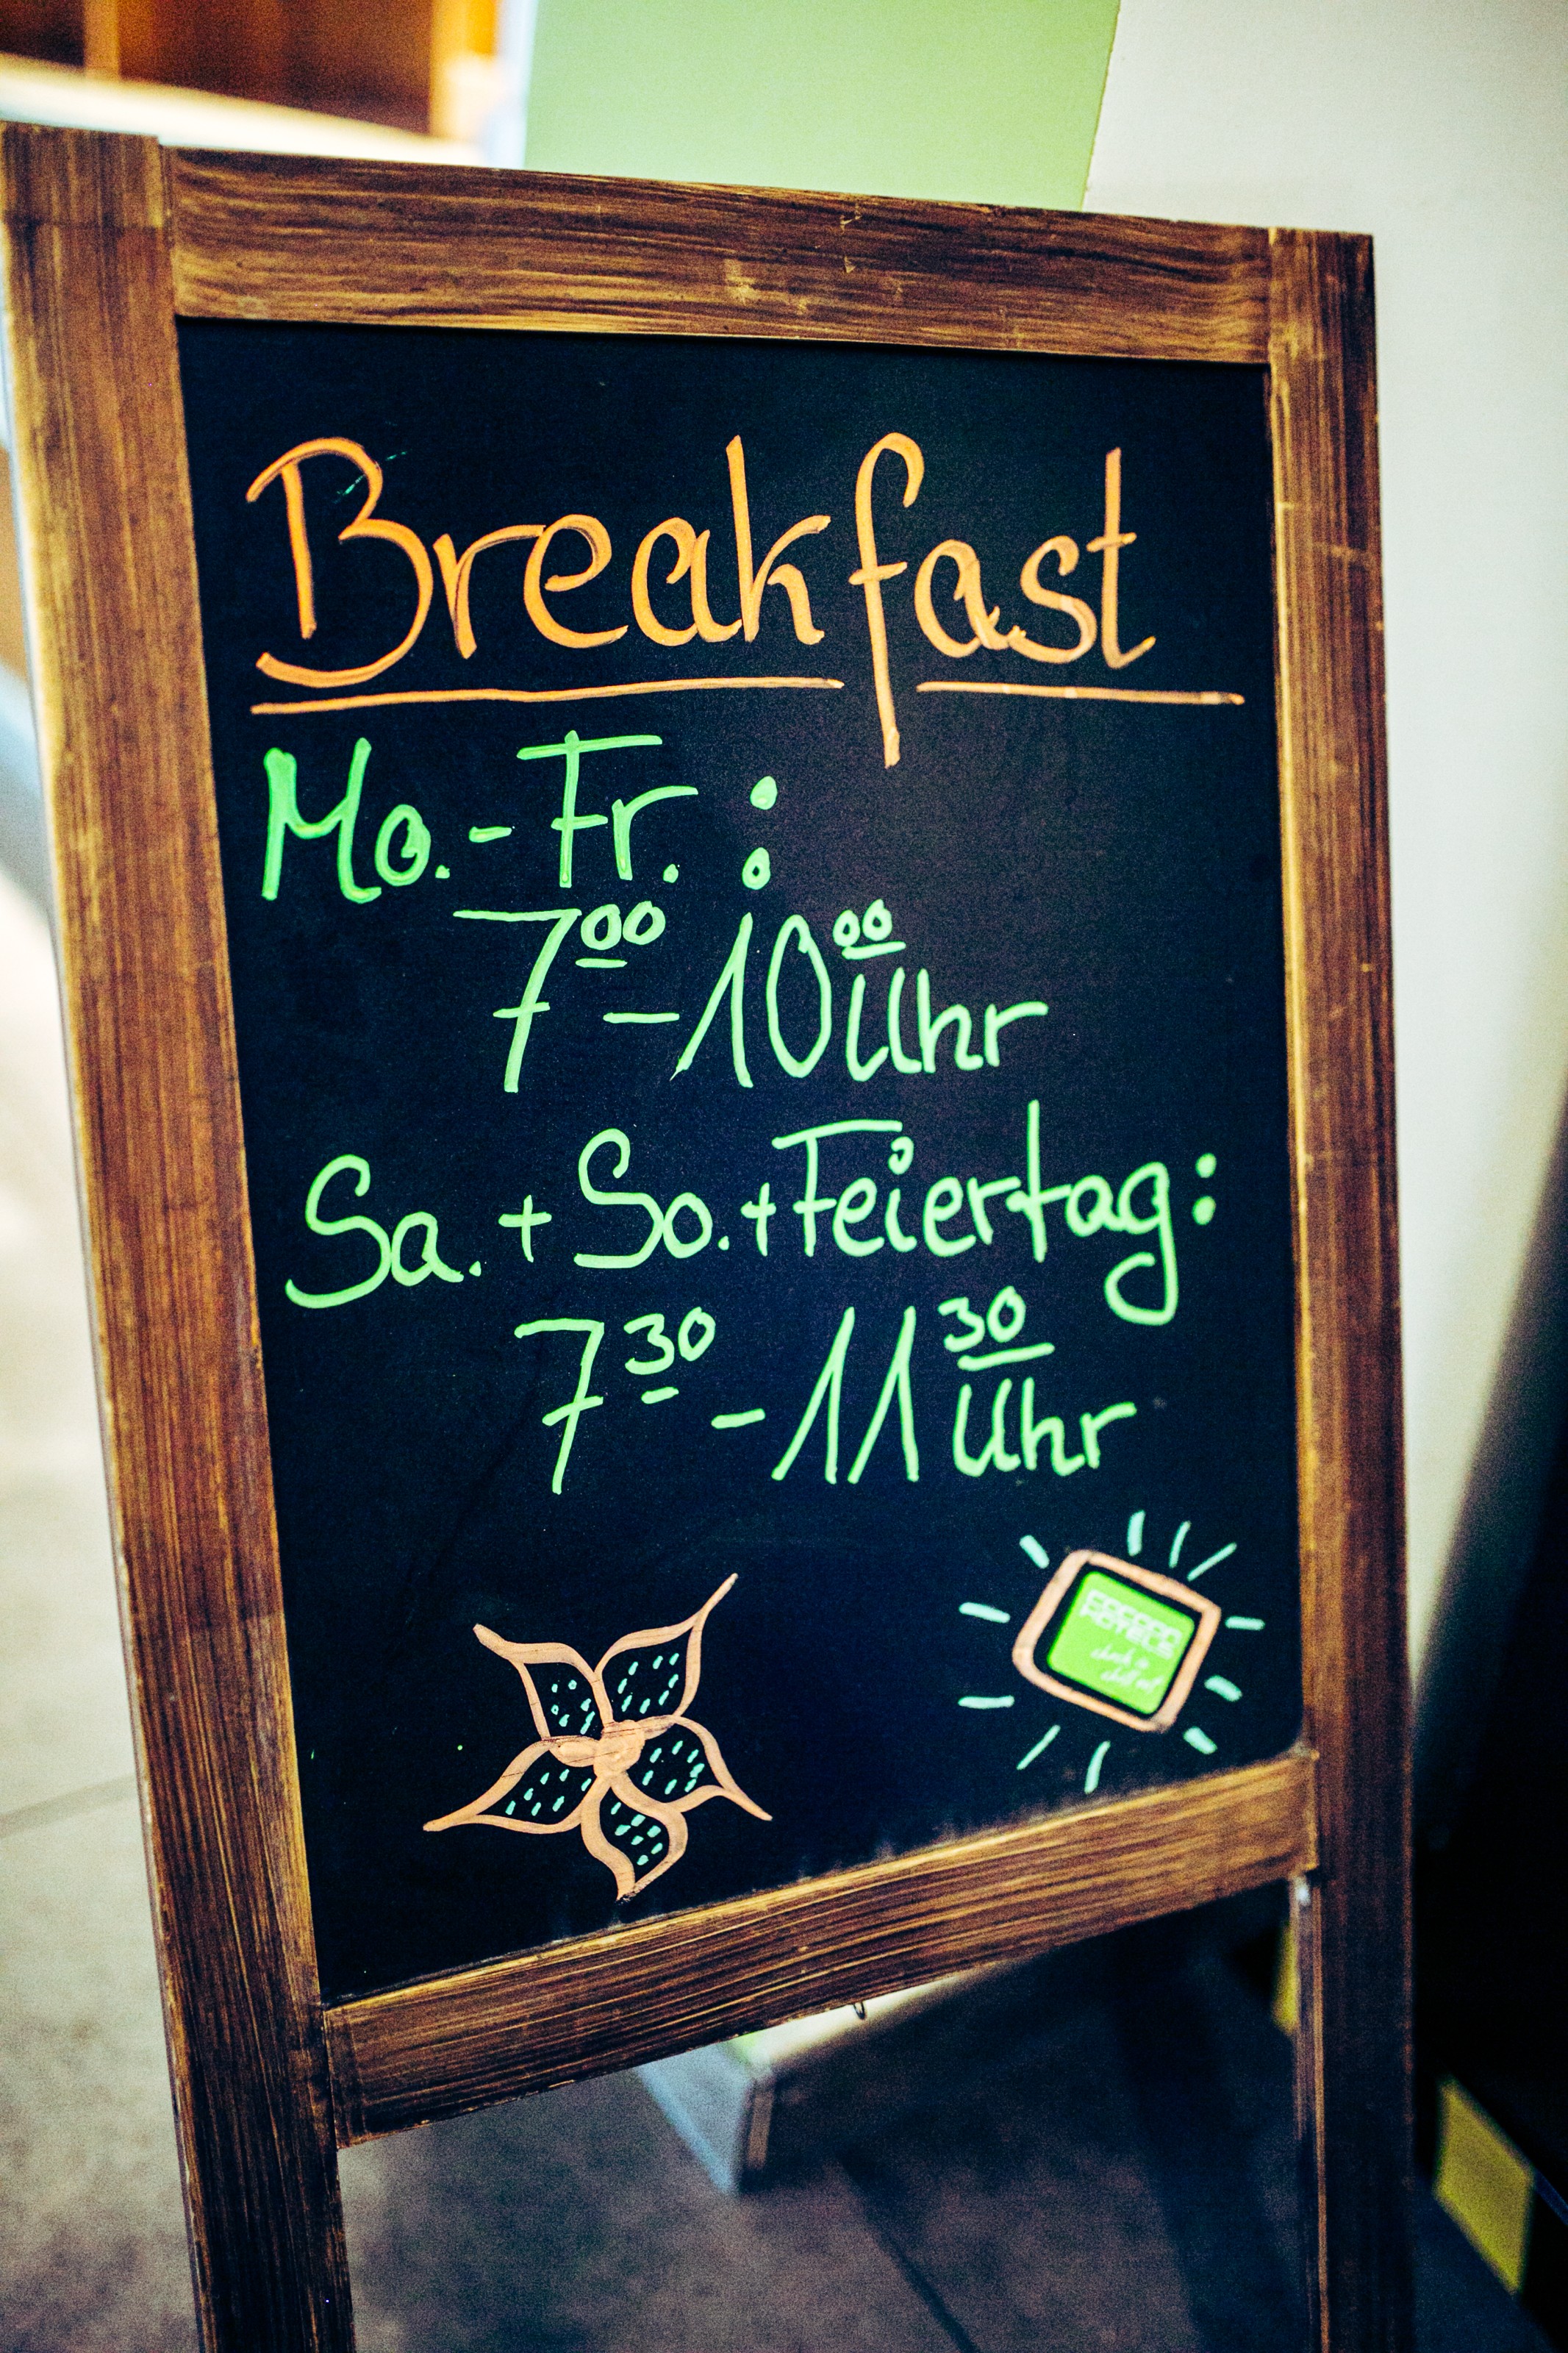 Breakfast
Mo.- Fr. :
7⁰⁰ - 10⁰⁰ Uhr
Sa. + So. + Feiertag:
7³⁰ - 11³⁰ Uhr
COCOON
HOTELS
check in
chill out